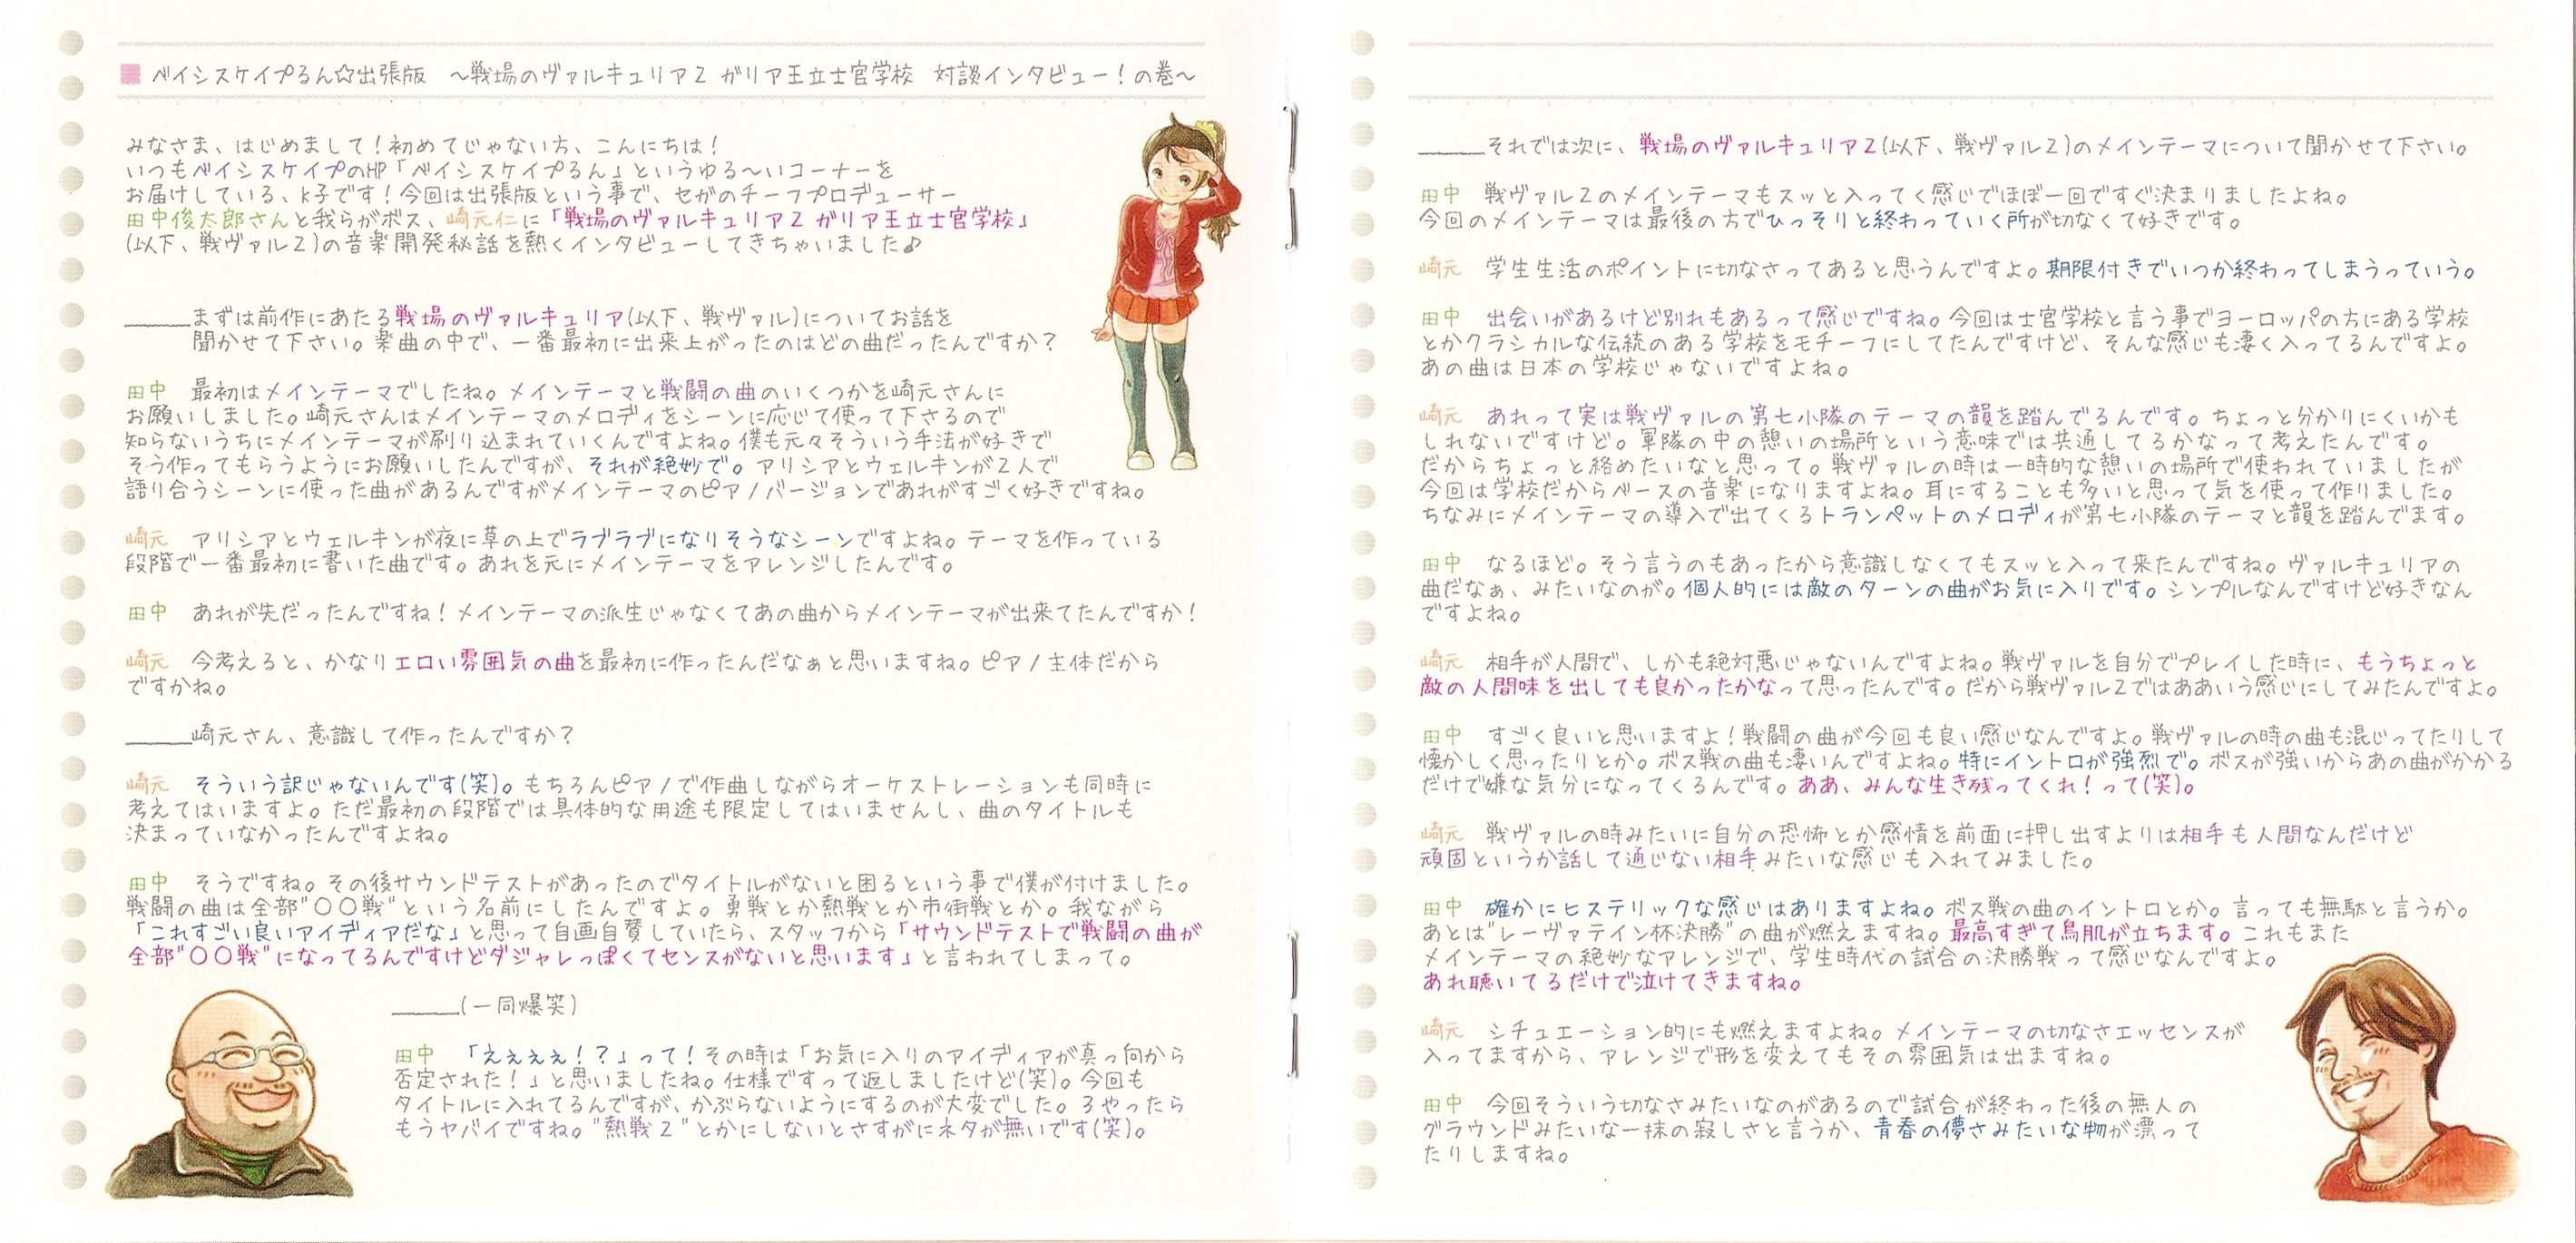 ベイシスケイプるん☆出張版　～戦場のヴァルキュリア2 ガリア王立士官学校　対談インタビュー！の巻～
みなさま、はじめまして！初めてじゃない方、こんにちは！
いつもベイシスケイプのHP「ベイシスケイプるん」というゆる～いコーナーを
お届けしている、K子です！今回は出張版という事で、セガのチーフプロデューサー
田中俊太郎さんと我らがボス、崎元仁に「戦場のヴァルキュリア2 ガリア王立士官学校」
(以下、戦ヴァル2)の音楽開発秘話を熱くインタビューしてきちゃいました♪
＿＿＿まずは前作にあたる戦場のヴァルキュリア(以下、戦ヴァル)についてお話を
聞かせて下さい。楽曲の中で、一番最初に出来上がったのはどの曲だったんですか？
田中　最初はメインテーマでしたね。メインテーマと戦闘の曲のいくつかを崎元さんに
お願いしました。崎元さんはメインテーマのメロディをシーンに応じて使って下さるので
知らないうちにメインテーマが刷り込まれていくんですよね。僕も元々そういう手法が好きで
そう作ってもらうようにお願いしたんですが、それが絶妙で。アリシアとウェルキンが2人で
語り合うシーンに使った曲があるんですがメインテーマのピアノバージョンであれがすごく好きですね。
崎元　アリシアとウェルキンが夜に草の上でラブラブになりそうなシーンですよね。テーマを作っている
段階で一番最初に書いた曲です。あれを元にメインテーマをアレンジしたんです。
田中　あれが先だったんですね！メインテーマの派生じゃなくてあの曲からメインテーマが出来てたんですか！
崎元　今考えると、かなりエロい雰囲気の曲を最初に作ったんだなぁと思いますね。ピアノ主体だから
ですかね。
＿＿＿崎元さん、意識して作ったんですか？
崎元　そういう訳じゃないんです(笑)。もちろんピアノで作曲しながらオーケストレーションも同時に
考えてはいますよ。ただ最初の段階では具体的な用途も限定してはいませんし、曲のタイトルも
決まっていなかったんですよね。
田中　そうですね。その後サウンドテストがあったのでタイトルがないと困るという事で僕が付けました。
戦闘の曲は全部"〇〇戦"という名前にしたんですよ。勇戦とか熱戦とか市街戦とか。我ながら
「これすごい良いアイディアだな」と思って自画自賛していたら、スタッフから「サウンドテストで戦闘の曲が
全部"〇〇戦"になってるんですけどダジャレっぽくてセンスがないと思います」と言われてしまって。
＿＿＿(一同爆笑)
田中　「えぇぇぇ！？」って！その時は「お気に入りのアイディアが真っ向から
否定された！」と思いましたね。仕様ですって返しましたけど(笑)。今回も
タイトルに入れてるんですが、かぶらないようにするのが大変でした。3やったら
もうヤバイですね。"熱戦2"とかにしないとさすがにネタが無いです(笑)。
＿＿＿それでは次に、戦場のヴァルキュリア2(以下、戦ヴァル2)のメインテーマについて聞かせて下さい。
田中　戦ヴァル2のメインテーマもスッと入ってく感じでほぼ一回ですぐ決まりましたよね。
今回のメインテーマは最後の方でひっそりと終わっていく所が切なくて好きです。
崎元　学生生活のポイントに切なさってあると思うんですよ。期限付きでいつか終わってしまうっていう。
田中　出会いがあるけど別れもあるって感じですね。今回は士官学校と言う事でヨーロッパの方にある学校
とかクラシカルな伝統のある学校をモチーフにしてたんですけど、そんな感じも凄く入ってるんですよ。
あの曲は日本の学校じゃないですよね。
崎元　あれって実は戦ヴァルの第七小隊のテーマの韻を踏んでるんです。ちょっと分かりにくいかも
しれないですけど。軍隊の中の憩いの場所という意味では共通してるかなって考えたんです。
だからちょっと絡めたいなと思って。戦ヴァルの時は一時的な憩いの場所で使われていましたが
今回は学校だからベースの音楽になりますよね。耳にすることも多いと思って気を使って作りました。
ちなみにメインテーマの導入で出てくるトランペットのメロディが第七小隊のテーマと韻を踏んでます。
田中　なるほど。そう言うのもあったから意識しなくてもスッと入って来たんですね。ヴァルキュリアの
曲だなぁ、みたいなのが。個人的には敵のターンの曲がお気に入りです。シンプルなんですけど好きなん
ですよね。
崎元　相手が人間で、しかも絶対悪じゃないんですよね。戦ヴァルを自分でプレイした時に、もうちょっと
敵の人間味を出しても良かったかなって思ったんです。だから戦ヴァル2ではああいう感じにしてみたんですよ。
田中　すごく良いと思いますよ！戦闘の曲が今回も良い感じなんですよ。戦ヴァルの時の曲も混じってたりして
懐かしく思ったりとか。ボス戦の曲も凄いんですよね。特にイントロが強烈で。ボスが強いからあの曲がかかる
だけで嫌な気分になってくるんです。ああ、みんな生き残ってくれ！って(笑)。
崎元　戦ヴァルの時みたいに自分の恐怖とか感情を前面に押し出すよりは相手も人間なんだけど
頑固というか話して通じない相手みたいな感じも入れてみました。
田中　確かにヒステリックな感じはありますよね。ボス戦の曲のイントロとか。言っても無駄と言うか。
あとは"レーヴァテイン杯決勝"の曲が燃えますね。最高すぎて鳥肌が立ちます。これもまた
メインテーマの絶妙なアレンジで、学生時代の試合の決勝戦って感じなんですよ。
あれ聴いてるだけで泣けてきますね。
崎元　シチュエーション的にも燃えますよね。メインテーマの切なさエッセンスが
入ってますから、アレンジで形を変えてもその雰囲気は出ますね。
田中　今回そういう切なさみたいなのがあるので試合が終わった後の無人の
グラウンドみたいな一抹の寂しさと言うか、青春の儚さみたいな物が漂って
たりしますね。